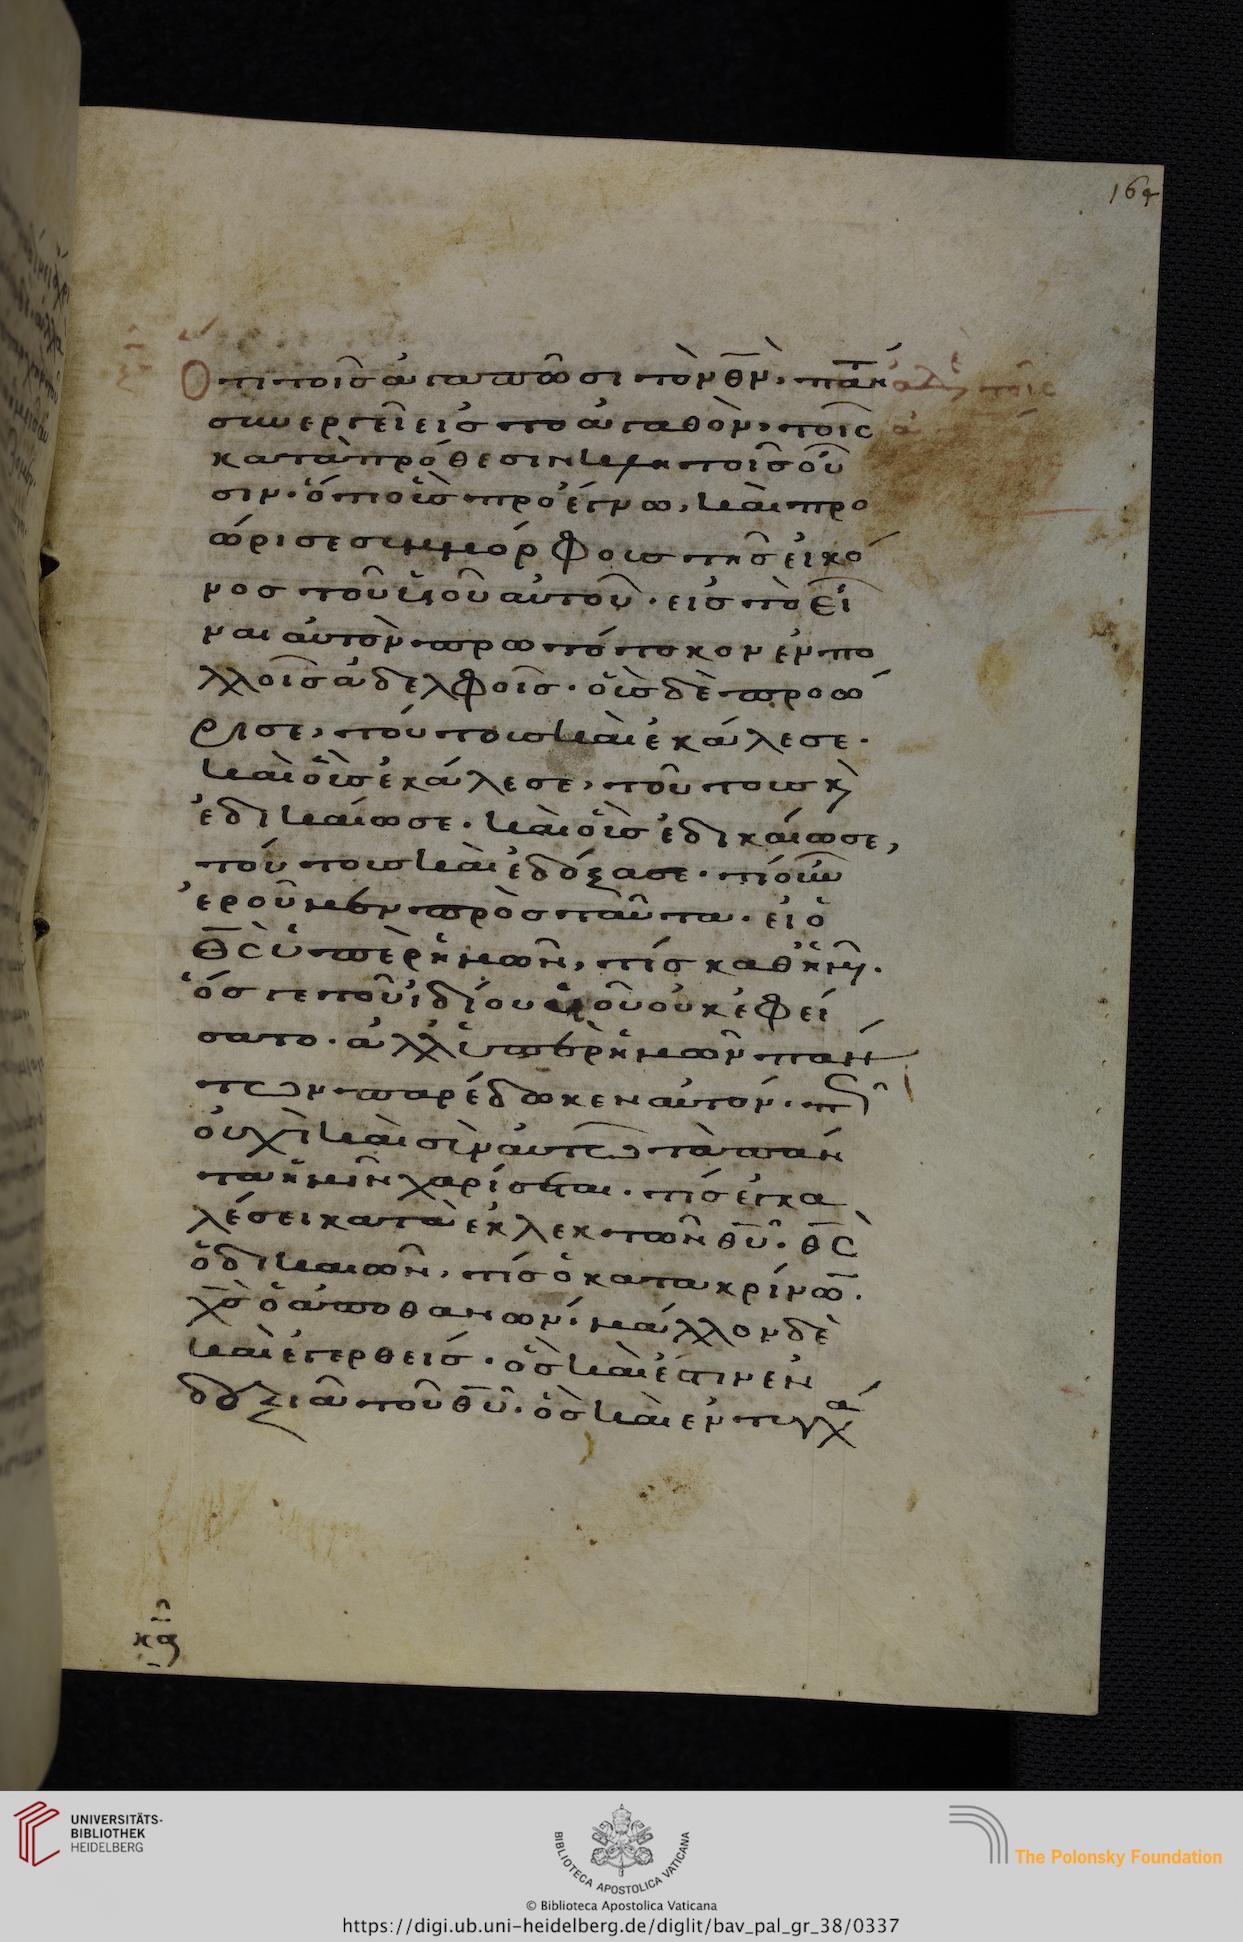 164
Ὅτι τοῖς ἀγαπῶσι τὸν θ̅ν̅, πάντα
συνεργεῖ εἰς τὸ ἀγαθὸν, τοῖς
κατὰ πρόθεσιν κλητοῖς οὖ
σιν· ὅτι οὓς προέγνω, καὶ προ
ώρισε συμμόρφους τῆς εἰκό
νος τοῦ υἱοῦ αὐτοῦ· εἰς τὸ εἶ
ναι αὐτὸν πρωτότοκον ἐν πο
λλοῖς ἀδελφοῖς· οὓς δὲ προώ
ρισε, τούτους καὶ ἐκάλεσε·
καὶ οὓς ἐκάλεσε, τούτους κ̀
ἐδικαίωσε· καὶ οὓς ἐδικαίωσε,
τούτους καὶ ἐδόξασε· τί οὖν
ἐροῦμεν πρὸς ταῦτα· εἰ ὁ
θ̅ς̅ ὑπὲρ ἡμῶν, τίς καθ' ἡμ·
ὅς γε τοῦ ἰδίου υἱοῦ οὐκ ἐφεί
σατο· ἀλλ' ὑπὲρ ἡμῶν πάν
των παρέδωκεν αὐτόν· πῶς
οὐχὶ καὶ σὺν αὐτῶ τὰ πάν
τα ἡμῖν χαρίσεται· τίς ἐγκα
λέσει κατὰ ἐκλεκτῶν θ̅υ̅· θ̅ς̅
ὁ δικαιῶν, τίς ὁ κατακρίνω̅·
χ̅ς̅ ὁ ἀποθανών· μάλλον δὲ
καὶ ἐγερθείς· ὃς καὶ ἐστιν ἐν
δεξιᾶ τοῦ θ̅υ̅· ὃς καὶ ἐντυγχά
κα
UNIVERSITÄTS-
BIBLIOTHEK
HEIDELBERG
BIBLIOTECA APOSTOLICA VATICANA
The Polonsky Foundation
© Biblioteca Apostolica Vaticana
https://digi.ub.uni-heidelberg.de/diglit/bav_pal_gr_38/0337